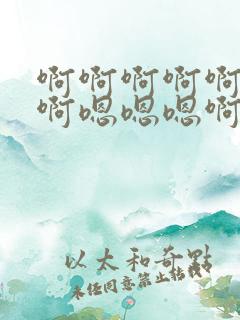 啊啊啊啊啊
啊嗯嗯嗯啊
以太和奇點
未经同意禁止转载